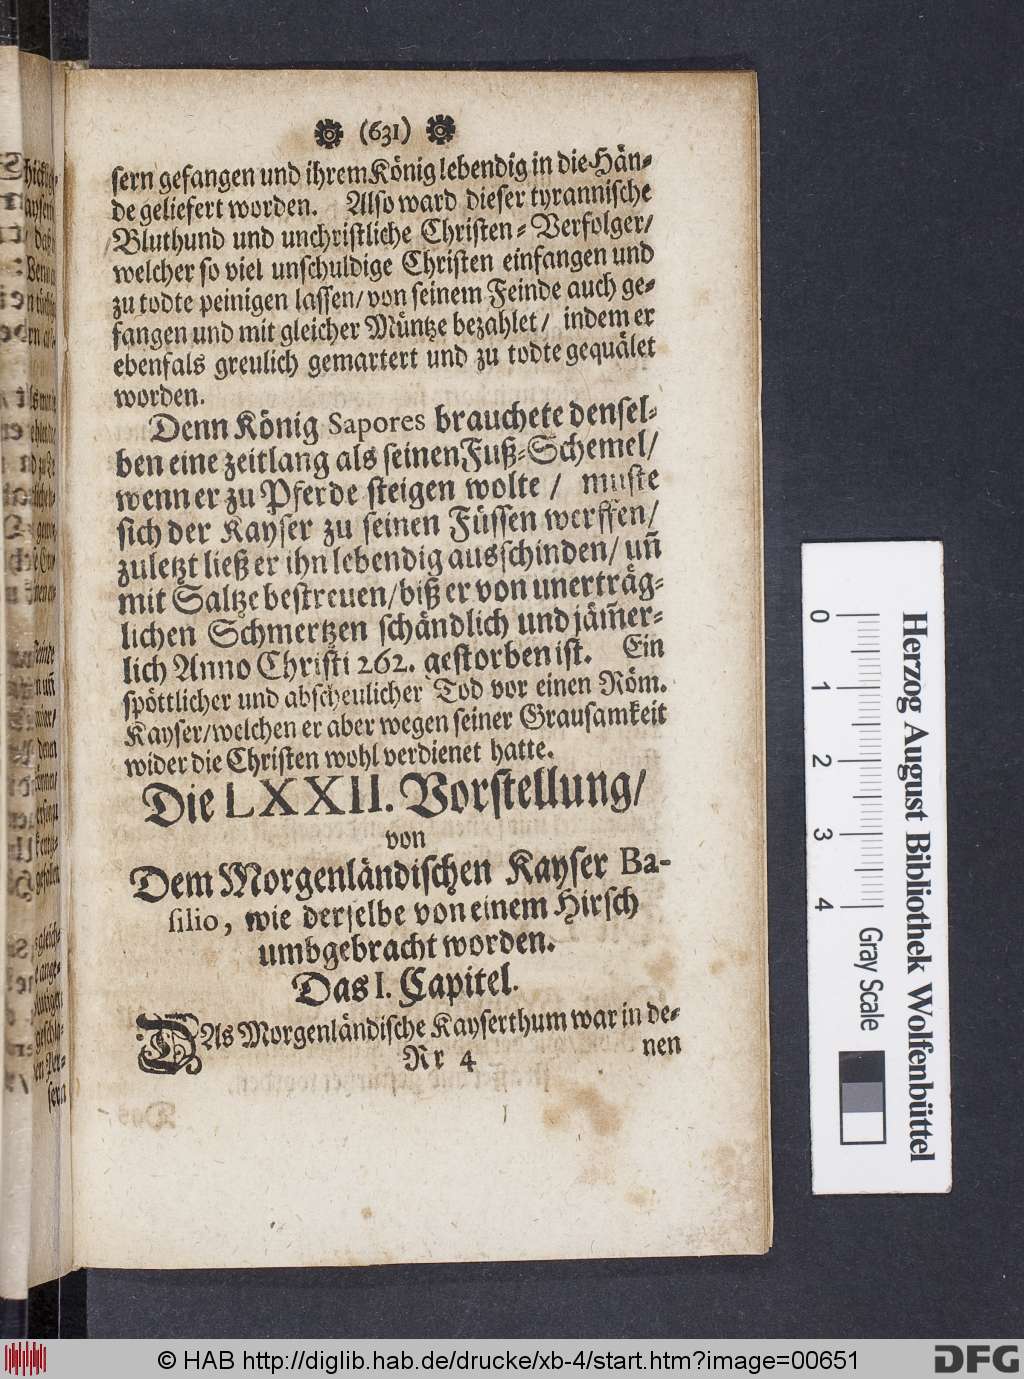 (631)
sern gefangen und ihrem König lebendig in die Hän-
de geliefert worden. Also ward dieser tyrannische
Bluthund und unchristliche Christen-Verfolger/
welcher so viel unschuldige Christen einfangen und
zu todte peinigen lassen/ von seinem Feinde auch ge-
fangen und mit gleicher Müntze bezahlet/ indem er
ebenfals greulich gemartert und zu todte gequälet
worden.
Denn König Sapores brauchete densel-
ben eine zeitlang als seinen Fuß-Schemel/
wenn er zu Pferde steigen wolte/ muste
sich der Kayser zu seinen Füssen werffen/
zuletzt ließ er ihn lebendig ausschinden/ uñ
mit Saltze bestreuen/ biß er von unerträg-
lichen Schmertzen schändlich und jäm̃er-
lich Anno Christi 262. gestorben ist. Ein
spöttlicher und abscheulicher Tod vor einen Röm.
Kayser/ welchen er aber wegen seiner Grausamkeit
wider die Christen wohl verdienet hatte.
Die LXXII. Vorstellung/
von
Dem Morgenländischen Kayser Ba-
silio, wie derselbe von einem Hirsch
umbgebracht worden.
Das I. Capitel.
DAs Morgenländische Kayserthum war in de-
Rr 4 nen
0 1 2 3 4
Herzog August Bibliothek Wolfenbüttel
Gray Scale
© HAB http://diglib.hab.de/drucke/xb-4/start.htm?image=00651
DFG